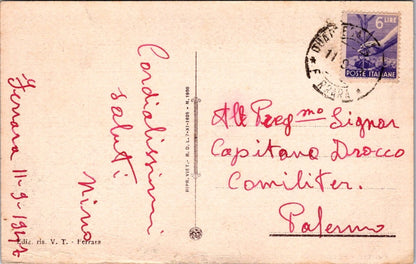 Cordialissimi
saluti
Nino
Ferrara 11-9-1947
Ediz. ris. V. T. - Ferrara
RIPR. VIET. - R. D. L. 7-XI-1925 - N. 1950
6 LIRE
POSTE ITALIANE
All Preg.mo Signor
Capitano Drocco
Comiliter.
Palermo